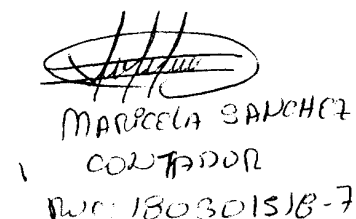 MARICELA SANCHEZ
CONTADOR
RUC: 180301518-7